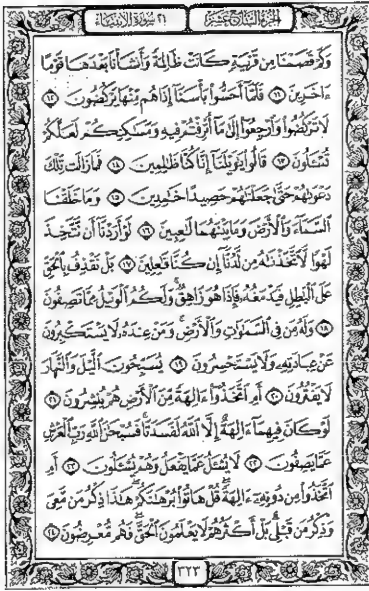 الجزء السابع عشر ٢١ سورة الأنبياء
وَكَمْ قَصَمْنَا مِن قَرْيَةٍ كَانَتْ ظَالِمَةً وَأَنشَأْنَا بَعْدَهَا قَوْمًا
ءَاخَرِينَ ١١ فَلَمَّآ أَحَسُّوا۟ بَأْسَنَآ إِذَا هُم مِّنْهَا يَرْكُضُونَ ١٢
لَا تَرْكُضُوا۟ وَٱرْجِعُوٓا۟ إِلَىٰ مَآ أُتْرِفْتُمْ فِيهِ وَمَسَـٰكِنِكُمْ لَعَلَّكُمْ
تُسْـَٔلُونَ ١٣ قَالُوا۟ يَـٰوَيْلَنَآ إِنَّا كُنَّا ظَـٰلِمِينَ ١٤ فَمَا زَالَت تِّلْكَ
دَعْوَىٰهُمْ حَتَّىٰ جَعَلْنَـٰهُمْ حَصِيدًا خَـٰمِدِينَ ١٥ وَمَا خَلَقْنَا
ٱلسَّمَآءَ وَٱلْأَرْضَ وَمَا بَيْنَهُمَا لَـٰعِبِينَ ١٦ لَوْ أَرَدْنَآ أَن نَّتَّخِذَ
لَهْوًا لَّٱتَّخَذْنَـٰهُ مِن لَّدُنَّآ إِن كُنَّا فَـٰعِلِينَ ١٧ بَلْ نَقْذِفُ بِٱلْحَقِّ
عَلَى ٱلْبَـٰطِلِ فَيَدْمَغُهُۥ فَإِذَا هُوَ زَاهِقٌ ۚ وَلَكُمُ ٱلْوَيْلُ مِمَّا تَصِفُونَ
١٨ وَلَهُۥ مَن فِى ٱلسَّمَـٰوَٰتِ وَٱلْأَرْضِ ۚ وَمَنْ عِندَهُۥ لَا يَسْتَكْبِرُونَ
عَنْ عِبَادَتِهِۦ وَلَا يَسْتَحْسِرُونَ ١٩ يُسَبِّحُونَ ٱلَّيْلَ وَٱلنَّهَارَ
لَا يَفْتُرُونَ ٢٠ أَمِ ٱتَّخَذُوٓا۟ ءَالِهَةً مِّنَ ٱلْأَرْضِ هُمْ يُنشِرُونَ ٢١
لَوْ كَانَ فِيهِمَآ ءَالِهَةٌ إِلَّا ٱللَّهُ لَفَسَدَتَا ۚ فَسُبْحَـٰنَ ٱللَّهِ رَبِّ ٱلْعَرْشِ
عَمَّا يَصِفُونَ ٢٢ لَا يُسْـَٔلُ عَمَّا يَفْعَلُ وَهُمْ يُسْـَٔلُونَ ٢٣ أَمِ
ٱتَّخَذُوا۟ مِن دُونِهِۦٓ ءَالِهَةً ۖ قُلْ هَاتُوا۟ بُرْهَـٰنَكُمْ ۖ هَـٰذَا ذِكْرُ مَن مَّعِىَ
وَذِكْرُ مَن قَبْلِى ۗ بَلْ أَكْثَرُهُمْ لَا يَعْلَمُونَ ٱلْحَقَّ ۖ فَهُم مُّعْرِضُونَ ٢٤
٣٢٣